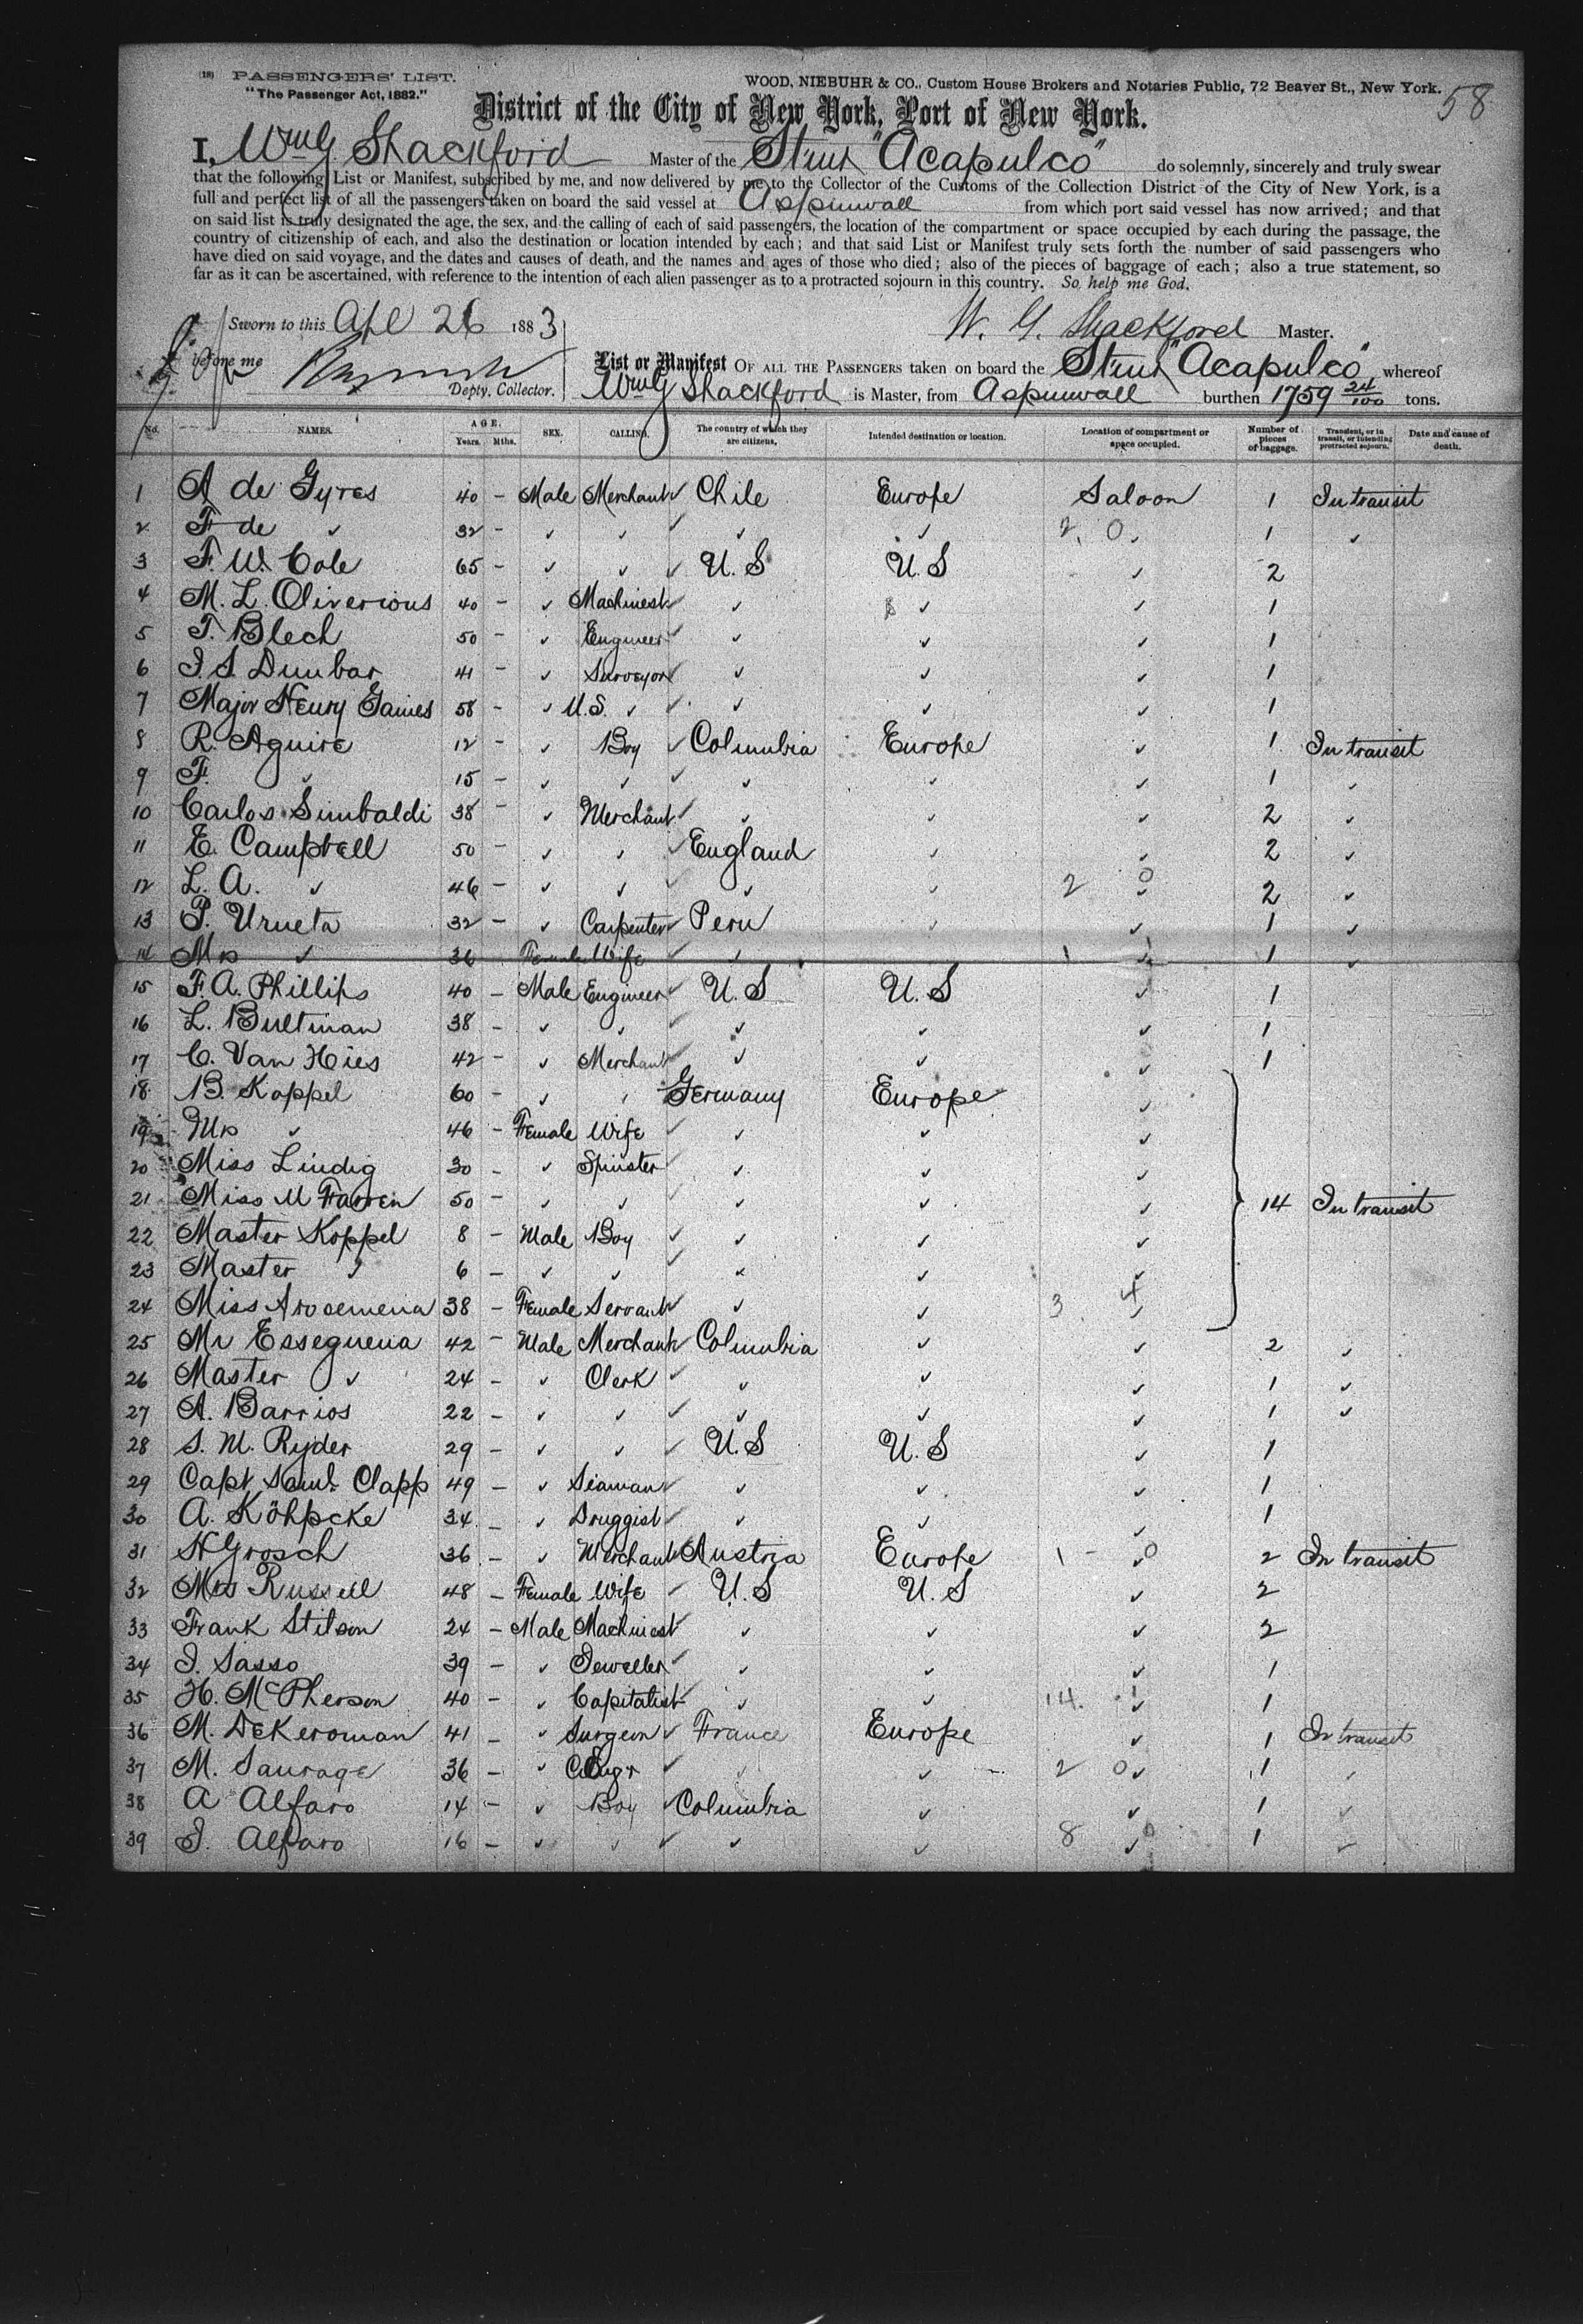 (18) PASSENGERS' LIST.
"The Passenger Act, 1882."
WOOD, NIEBUHR & CO., Custom House Brokers and Notaries Public, 72 Beaver St., New York.
58
District of the City of New York, Port of New York.
I, Wm G Shackford Master of the Stmr "Acapulco" do solemnly, sincerely and truly swear
that the following List or Manifest, subscribed by me, and now delivered by me to the Collector of the Customs of the Collection District of the City of New York, is a
full and perfect list of all the passengers taken on board the said vessel at Aspinwall from which port said vessel has now arrived; and that
on said list is truly designated the age, the sex, and the calling of each of said passengers, the location of the compartment or space occupied by each during the passage, the
country of citizenship of each, and also the destination or location intended by each; and that said List or Manifest truly sets forth the number of said passengers who
have died on said voyage, and the dates and causes of death, and the names and ages of those who died; also of the pieces of baggage of each; also a true statement, so
far as it can be ascertained, with reference to the intention of each alien passenger as to a protracted sojourn in this country. So help me God.
Sworn to this Apl 26 1883
W. G. Shackford Master.
before me
Depty. Collector.
List or Manifest OF ALL THE PASSENGERS taken on board the Stmr "Acapulco" whereof
Wm G Shackford is Master, from Aspinwall burthen 1759 24/100 tons.
No. NAMES. AGE. Years. Mths. SEX. CALLING. The country of which they are citizens. Intended destination or location. Location of compartment or space occupied. Number of pieces of baggage. Transient, or in transit, or intending protracted sojourn. Date and cause of death.
1 A de Gyres 40 - Male Merchant ✓ Chile Europe Saloon 1 In transit
2 F de ✓ 32 - ✓ ✓ ✓ ✓ ✓ 2. 0. 1 ✓
3 F. W. Cole 65 - ✓ ✓ ✓ U.S U.S ✓ 2
4 M. L. Oliverious 40 - ✓ Machinest ✓ ✓ ✓ ✓ 1
5 T. Blech 50 - ✓ Engineer ✓ ✓ ✓ ✓ 1
6 I. S. Dunbar 41 - ✓ Surveyor ✓ ✓ ✓ ✓ 1
7 Major Henry Gaines 58 - ✓ U.S. ✓ ✓ ✓ ✓ ✓ 1
8 R. Aguire 12 - ✓ Boy ✓ Columbia Europe ✓ 1 In transit
9 F. ✓ 15 - ✓ ✓ ✓ ✓ ✓ ✓ 1 ✓
10 Carlos Simbaldi 38 - ✓ Merchant ✓ ✓ ✓ ✓ 2 ✓
11 E. Campbell 50 - ✓ ✓ ✓ England ✓ ✓ 2 ✓
12 L. A. ✓ 46 - ✓ ✓ ✓ ✓ ✓ 2 0 ✓ 2 ✓
13 P. Urueta 32 - ✓ Carpenter ✓ Peru ✓ ✓ 1 ✓
14 Mrs ✓ 36 Female Wife ✓ ✓ 1 1 1 ✓
15 F. A. Phillips 40 - Male Engineer ✓ U.S U.S ✓ 1
16 L. Bultman 38 - ✓ ✓ ✓ ✓ ✓ ✓ 1
17 C. Van Hies 42 - ✓ Merchant ✓ ✓ ✓ ✓ 1
18 B. Koppel 60 - ✓ ✓ Germany Europe ✓
19 Mrs ✓ 46 - Female Wife ✓ ✓ ✓ ✓
20 Miss Lindig 30 - ✓ Spinster ✓ ✓ ✓
21 Miss M Farrein 50 - ✓ ✓ ✓ ✓ ✓ ✓ 14 In transit
22 Master Koppel 8 - Male Boy ✓ ✓ ✓ ✓
23 Master ✓ 6 - ✓ ✓ ✓ ✓ ✓ ✓
24 Miss Arosemena 38 - Female Servant ✓ ✓ ✓ 3 4 ✓
25 Mr Esseguena 42 - Male Merchant Columbia ✓ ✓ 2 ✓
26 Master ✓ 24 - ✓ Clerk ✓ ✓ ✓ ✓ 1 ✓
27 A. Barrios 22 - ✓ ✓ ✓ ✓ ✓ ✓ 1 ✓
28 S. M. Ryder 29 - ✓ ✓ ✓ U.S U.S ✓ 1
29 Capt Saml. Clapp 49 - ✓ Seaman ✓ ✓ ✓ ✓ 1
30 A. Köhpcke 34 - ✓ Druggist ✓ ✓ ✓ ✓ 1
31 H Grosch 36 - ✓ Merchant Austria Europe 1 - 0 ✓ 2 In transit
32 Mrs Russell 48 - Female Wife ✓ U.S U.S ✓ 2
33 Frank Stilson 24 - Male Machinest ✓ ✓ ✓ ✓ 2
34 I. Sasso 39 - ✓ Jeweller ✓ ✓ ✓ ✓ 1
35 H. McPherson 40 - ✓ Capitalist ✓ ✓ 14. 1 ✓ 1
36 M. DeKeroman 41 - ✓ Surgeon ✓ France Europe ✓ 1 In transit
37 M. Saurage 36 - ✓ C Engr ✓ ✓ 2 0 ✓ 1 ✓
38 A Alfaro 14 - ✓ Boy ✓ Columbia ✓ ✓ 1 ✓
39 I. Alfaro 16 - ✓ ✓ ✓ ✓ ✓ 8 0 ✓ 1 ✓